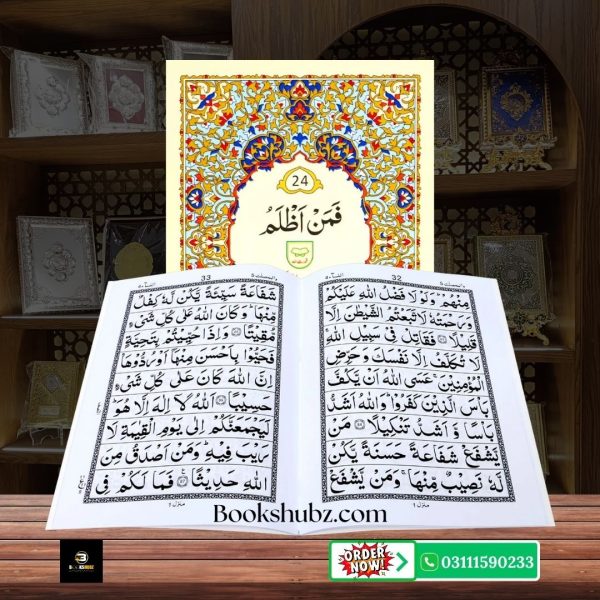 24
فَمَنْ اَظْلَمُ
32
مِنْهُمْ ؕ وَلَوْلَا فَضْلُ اللّٰهِ عَلَيْكُمْ
وَرَحْمَتُهٗ لَاتَّبَعْتُمُ الشَّيْطٰنَ اِلَّا
قَلِيْلًا فَقَاتِلْ فِيْ سَبِيْلِ اللّٰهِ
لَا تُكَلَّفُ اِلَّا نَفْسَكَ وَحَرِّضِ
الْمُؤْمِنِيْنَ عَسَى اللّٰهُ اَنْ يَّكُفَّ
بَاْسَ الَّذِيْنَ كَفَرُوْا ؕ وَاللّٰهُ اَشَدُّ
بَاْسًا وَّ اَشَدُّ تَنْكِيْلًا مَنْ
يَّشْفَعْ شَفَاعَةً حَسَنَةً يَّكُنْ
لَّهٗ نَصِيْبٌ مِّنْهَا ۚ وَمَنْ يَّشْفَعْ
منزل ۱
33
شَفَاعَةً سَيِّئَةً يَّكُنْ لَّهٗ كِفْلٌ
مِّنْهَا ؕ وَكَانَ اللّٰهُ عَلٰى كُلِّ شَيْءٍ
مُّقِيْتًا وَاِذَا حُيِّيْتُمْ بِتَحِيَّةٍ
فَحَيُّوْا بِاَحْسَنَ مِنْهَا اَوْ رُدُّوْهَا ؕ
اِنَّ اللّٰهَ كَانَ عَلٰى كُلِّ شَيْءٍ
حَسِيْبًا اَللّٰهُ لَاۤ اِلٰهَ اِلَّا هُوَ ؕ
لَيَجْمَعَنَّكُمْ اِلٰى يَوْمِ الْقِيٰمَةِ لَا
رَيْبَ فِيْهِ ؕ وَمَنْ اَصْدَقُ مِنَ
اللّٰهِ حَدِيْثًا فَمَا لَكُمْ فِي
منزل ۱
Bookshubz.com
BOOKSHUBZ
ORDER
NOW!
03111590233